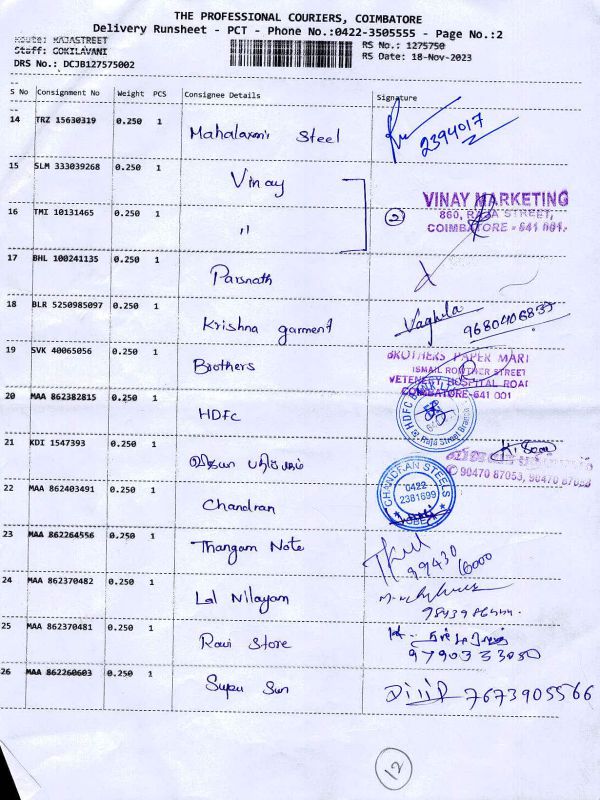 THE PROFESSIONAL COURIERS, COIMBATORE
Delivery Runsheet - PCT - Phone No.:0422-3505555 - Page No.:2
Route: RAJASTREET
Staff: GOKILAVANI
DRS No.: DCJB127575002
RS No.: 1275750
RS Date: 18-Nov-2023
S No Consignment No Weight PCS Consignee Details Signature
14 TRZ 15630319 0.250 1 Mahalaxmi Steel 2394017
15 SLM 333039268 0.250 1 Vinay
VINAY MARKETING
860, RAJA STREET,
COIMBATORE - 641 001.
16 TMI 10131465 0.250 1 " 2
17 BHL 100241135 0.250 1 Parsnath
18 BLR 5250985097 0.250 1 Krishna garment Vaghila
19 SVK 40065056 0.250 1 Brothers
BROTHERS PAPER MART
ISMAIL ROWTHER STREET
VETENERY HOSPITAL ROAD
COIMBATORE-641 001
20 MAA 862382815 0.250 1 HDFC
HDFC BANK LTD
Raja Street Branch
21 KDI 1547393 0.250 1
90470 87053, 90470 87058
22 MAA 862403491 0.250 1 Chandran
CHANDRAN STEELS
0422
2381699
23 MAA 862264556 0.250 1 Thangam Note 99430 16000
24 MAA 862370482 0.250 1 Lal Nilayam
25 MAA 862370481 0.250 1 Ravi Store
26 MAA 862260603 0.250 1 Supu Sun Dilip 7673905566
12